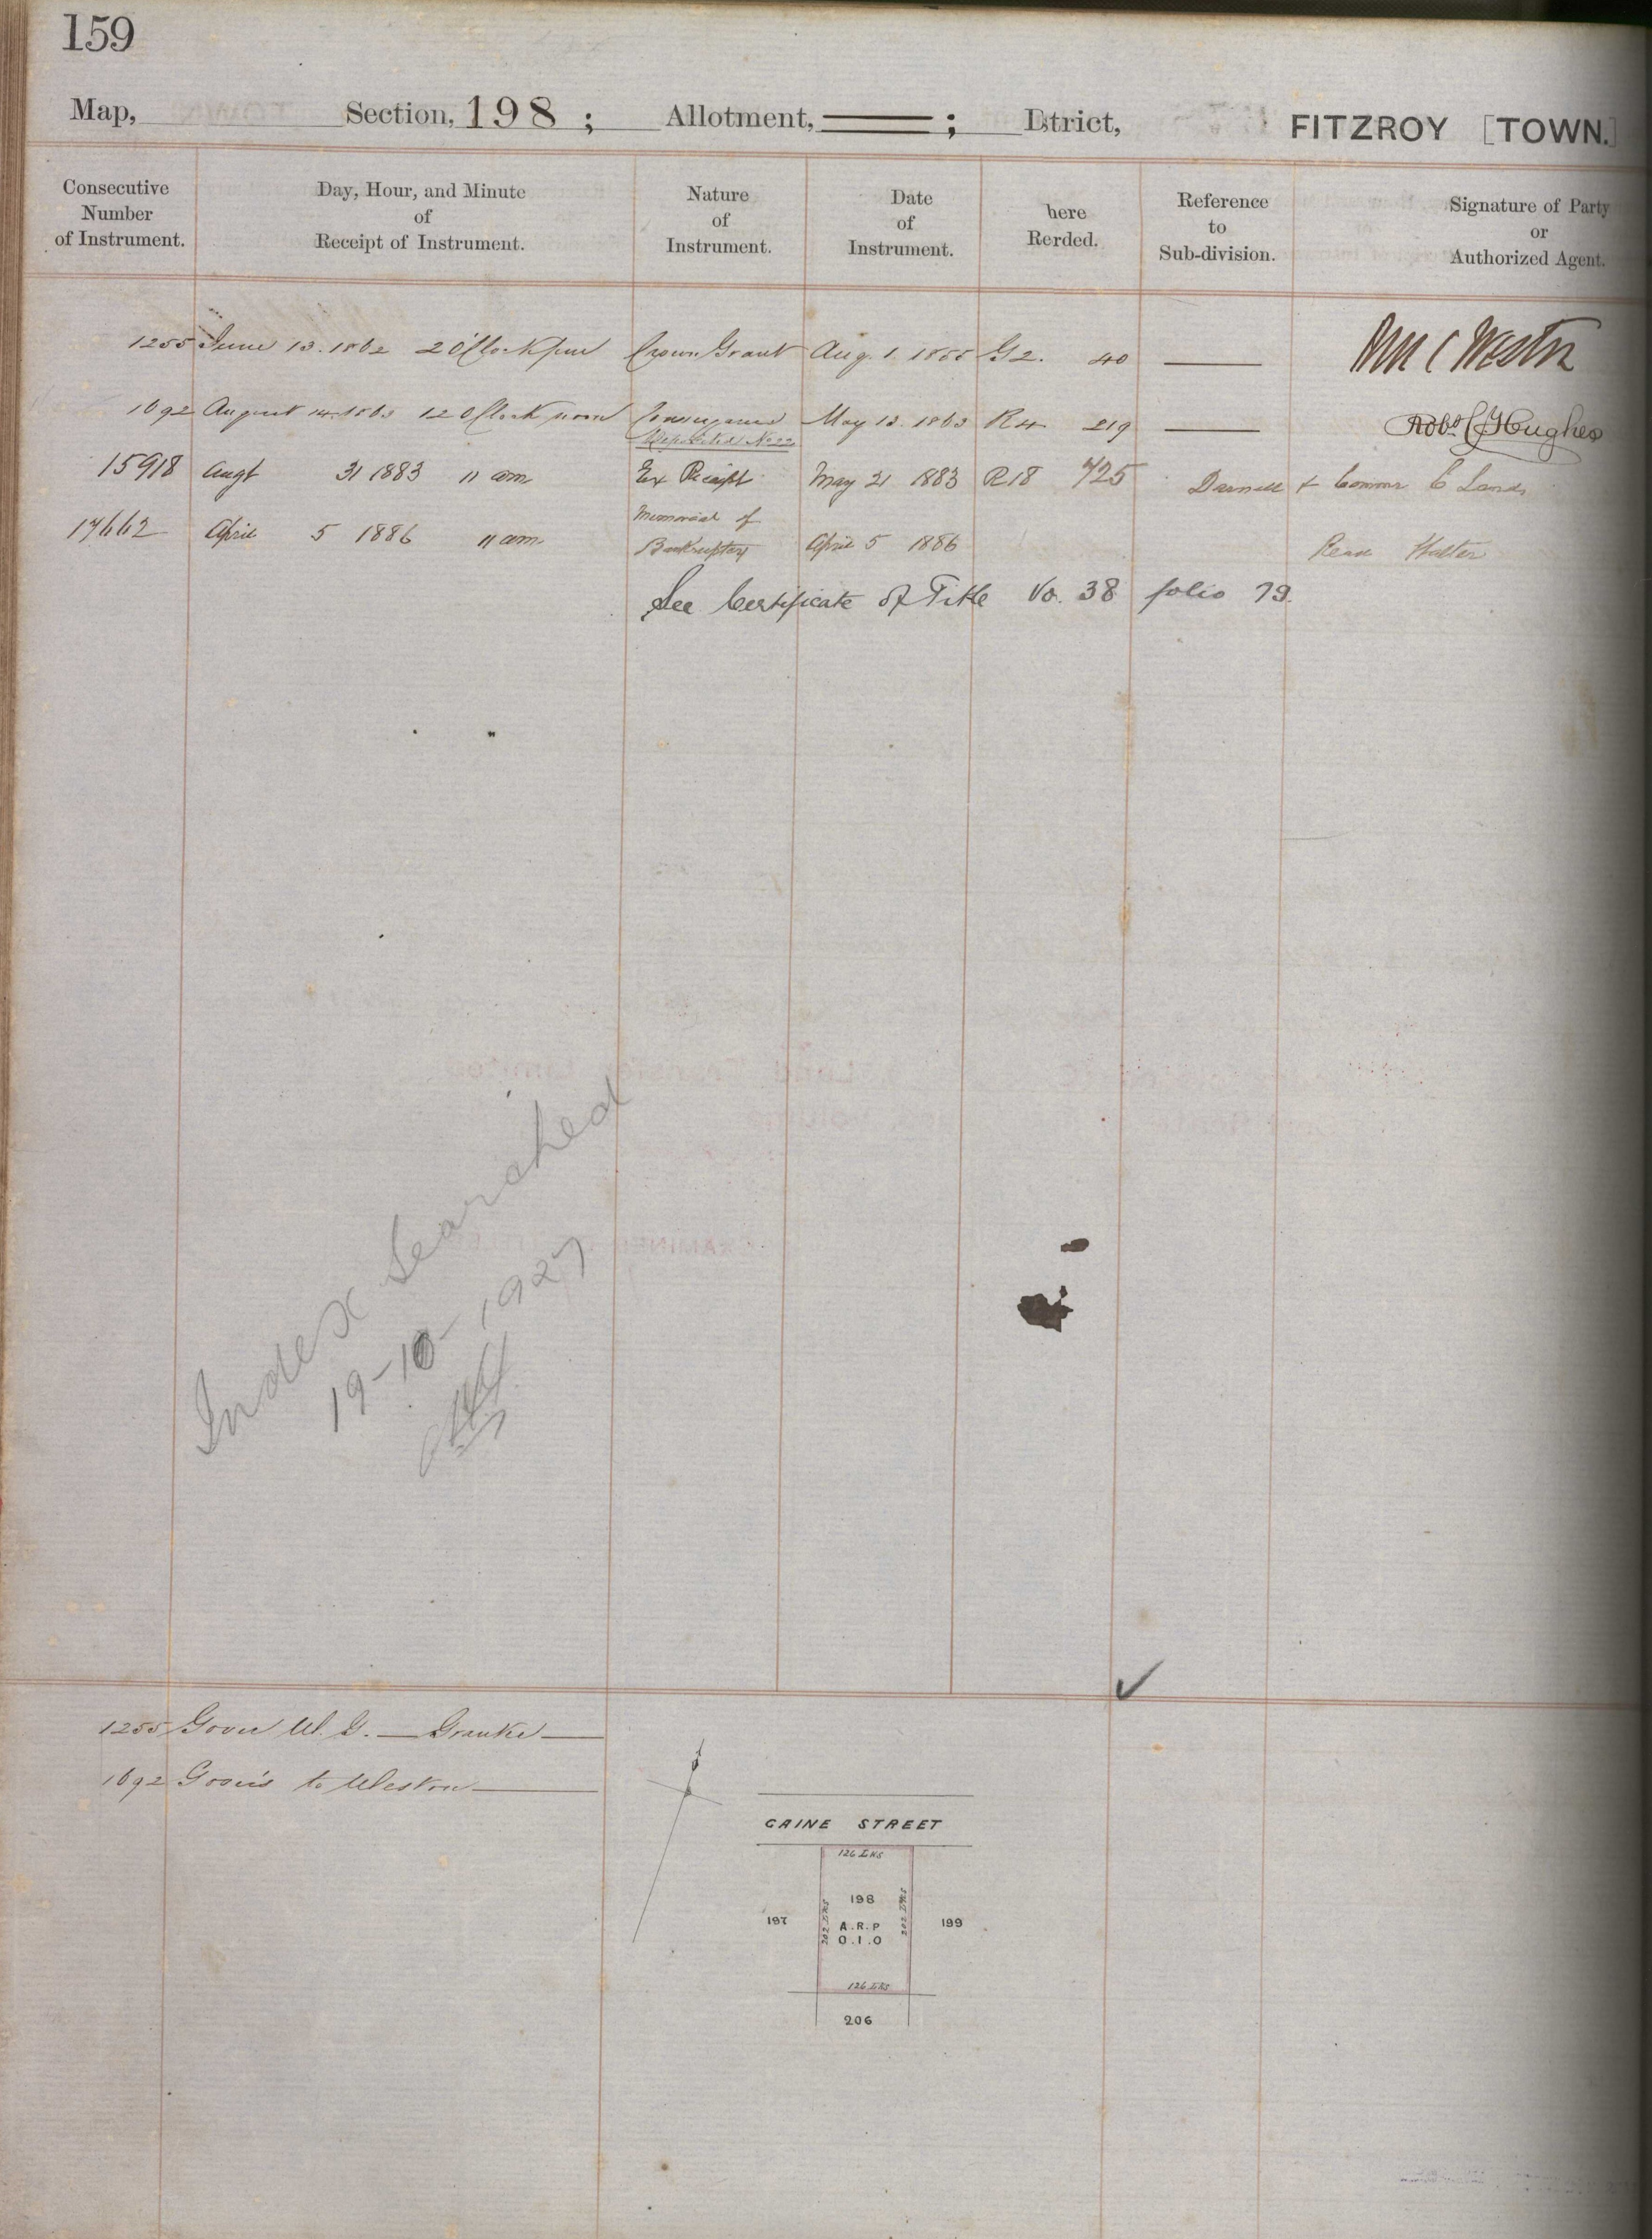 159
Map, Section, 198 ; Allotment, ——— ; District, FITZROY [TOWN.]
Consecutive Number of Instrument. Day, Hour, and Minute of Receipt of Instrument. Nature of Instrument. Date of Instrument. here Rerded. Reference to Sub-division. Signature of Party or Authorized Agent.
1255 June 13. 1862 2 OClock pm Crown Grant Aug. 1. 1855 G2. 40 ———
1692 August 14. 1863 12 OClock noon Conveyance May 13. 1863 R4 219 ——— Robt C Hughes
Deposited No 22
15918 Augt 31 1883 11 am Ex Receipt May 21 1883 R18 725 & Commr C Lands
17662 April 5 1886 11 am Memorial of Bankruptcy April 5 1886
See Certificate of Title Vo. 38 folio 79.
Index Searched
19-10-1927
1255 Gover W. G. — Grantee —
1692 Gover to Weston —
CAINE STREET
126 LKS
198
202 LKS 202 LKS
197 199
A.R.P
0.1.0
126 LKS
206